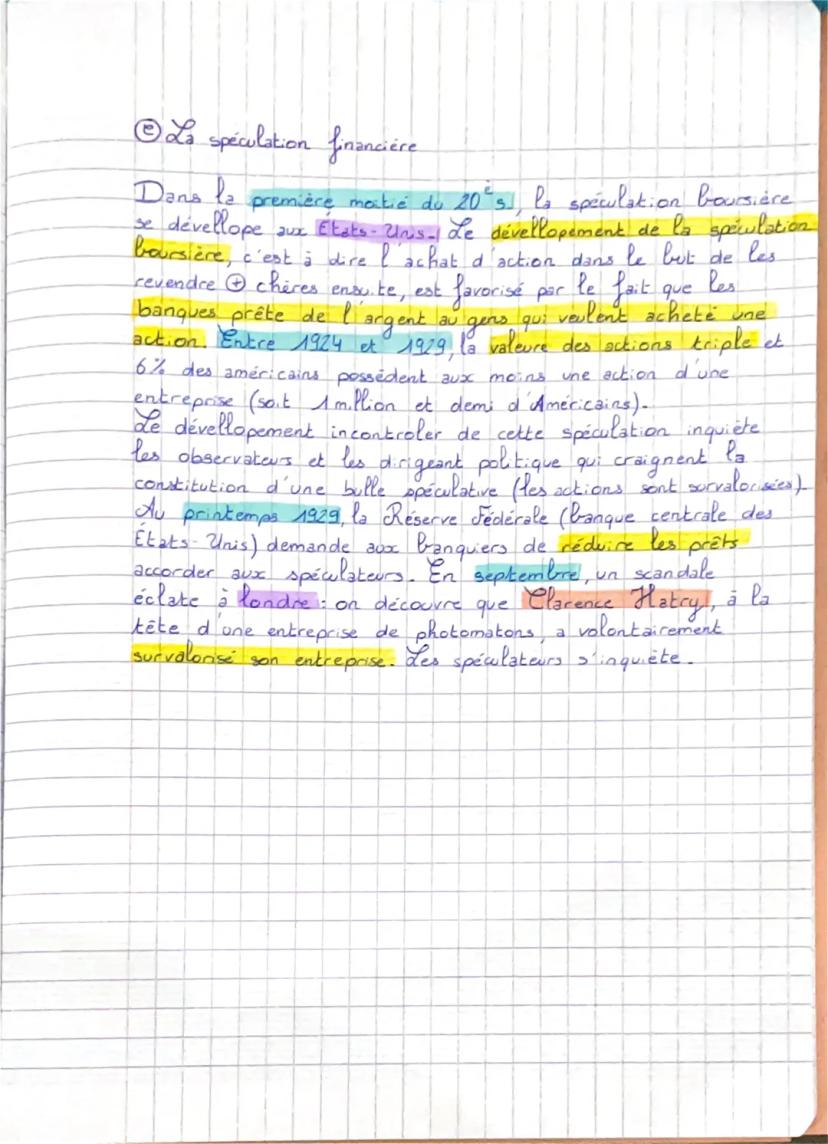 ⓔ La spéculation financière
Dans la première moitié du 20ès, la spéculation boursière
se dévellope aux États-Unis. Le dévellopement de la spéculation
boursière, c'est à dire l'achat d'action dans le but de les
revendre ⊕ chères ensuite, est favorisé par le fait que les
banques prête de l'argent au gens qui veulent acheté une
action. Entre 1924 et 1929, la valeure des actions triple et
6% des américains possèdent aux moins une action d'une
entreprise (soit 1 million et demi d'Américains).
Le dévellopement incontroler de cette spéculation inquiète
les observateurs et les dirigeant politique qui craignent la
constitution d'une bulle spéculative (les actions sont survalorisées).
Au printemps 1929, la Réserve Fédérale (banque centrale des
États-Unis) demande aux banquiers de réduire les prêts
accorder aux spéculateurs. En septembre, un scandale
éclate à londre : on découvre que Clarence Hatry, à la
tête d'une entreprise de photomatons, a volontairement
survalorisé son entreprise. Les spéculateurs s'inquiète.